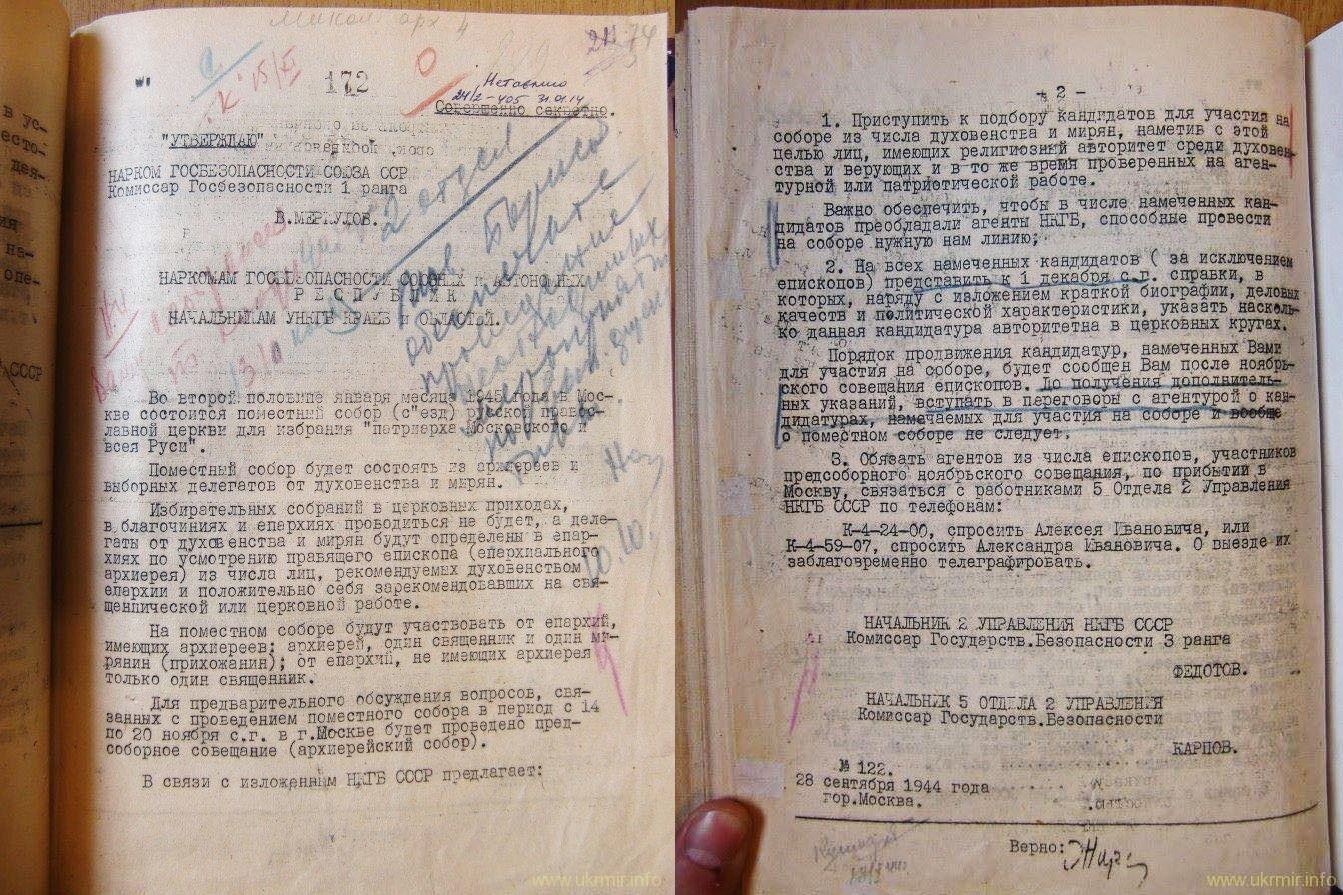 172
Нетаємно
24/2-405 31.01.14
Совершенно секретно.
"УТВЕРЖДАЮ"
НАРКОМ ГОСБЕЗОПАСНОСТИ СОЮЗА ССР
Комиссар Госбезопасности 1 ранга
В.МЕРКУЛОВ.
2 отдел
НАРКОМАМ ГОСБЕЗОПАСНОСТИ СОЮЗНЫХ И АВТОНОМНЫХ
РЕСПУБЛИК
НАЧАЛЬНИКАМ УНКГБ КРАЕВ И ОБЛАСТЕЙ.
Во второй половине января месяца 1945 года в Мос-
кве состоится поместный собор (с"езд) русской правос-
лавной церкви для избрания "патриарха Московского и
всея Руси".
Поместный собор будет состоять из архиереев и
выборных делегатов от духовенства и мирян.
Избирательных собраний в церковных приходах,
в благочиниях и епархиях проводиться не будет, а деле-
гаты от духовенства и мирян будут определены в епар-
хиях по усмотрению правящего епископа (епархиального
архиерея) из числа лиц, рекомендуемых духовенством
епархии и положительно себя зарекомендовавших на свя-
щеннической или церковной работе.
На поместном соборе будут участвовать от епархий,
имеющих архиереев: архиерей, один священник и один ми-
рянин (прихожанин); от епархий, не имеющих архиерея
только один священник.
Для предварительного обсуждения вопросов, свя-
занных с проведением поместного собора в период с 14
по 20 ноября с.г. в г.Москве будет проведено пред-
соборное совещание (архиерейский собор).
В связи с изложенным НКГБ СССР предлагает:
www.ukrmir.info
- 2 -
1. Приступить к подбору кандидатов для участия на
соборе из числа духовенства и мирян, наметив с этой
целью лиц, имеющих религиозный авторитет среди духовен-
ства и верующих и в то же время проверенных на аген-
турной или патриотической работе.
Важно обеспечить, чтобы в числе намеченных кан-
дидатов преобладали агенты НКГБ, способные провести
на соборе нужную нам линию;
2. На всех намеченных кандидатов ( за исключением
епископов) представить к 1 декабря с.г. справки, в
которых, наряду с изложением краткой биографии, деловых
качеств и политической характеристики, указать насколь-
ко данная кандидатура авторитетна в церковных кругах.
Порядок продвижения кандидатур, намеченных Вами
для участия на соборе, будет сообщен Вам после ноябрь-
ского совещания епископов. До получения дополнитель-
ных указаний, вступать в переговоры с агентурой о кан-
дидатурах, намечаемых для участия на соборе и вообще
о поместном соборе не следует.
3. Обязать агентов из числа епископов, участников
предсоборного ноябрьского совещания, по прибытии в
Москву, связаться с работниками 5 Отдела 2 Управления
НКГБ СССР по телефонам:
К-4-24-00, спросить Алексея Ивановича, или
К-4-59-07, спросить Александра Ивановича. О выезде их
заблаговременно телеграфировать.
НАЧАЛЬНИК 2 УПРАВЛЕНИЯ НКГБ СССР
Комиссар Государств.Безопасности 3 ранга
ФЕДОТОВ.
НАЧАЛЬНИК 5 ОТДЕЛА 2 УПРАВЛЕНИЯ
Комиссар Государств.Безопасности
КАРПОВ.
№ 122.
28 сентября 1944 года
гор.Москва.
Верно:
www.ukrmir.info